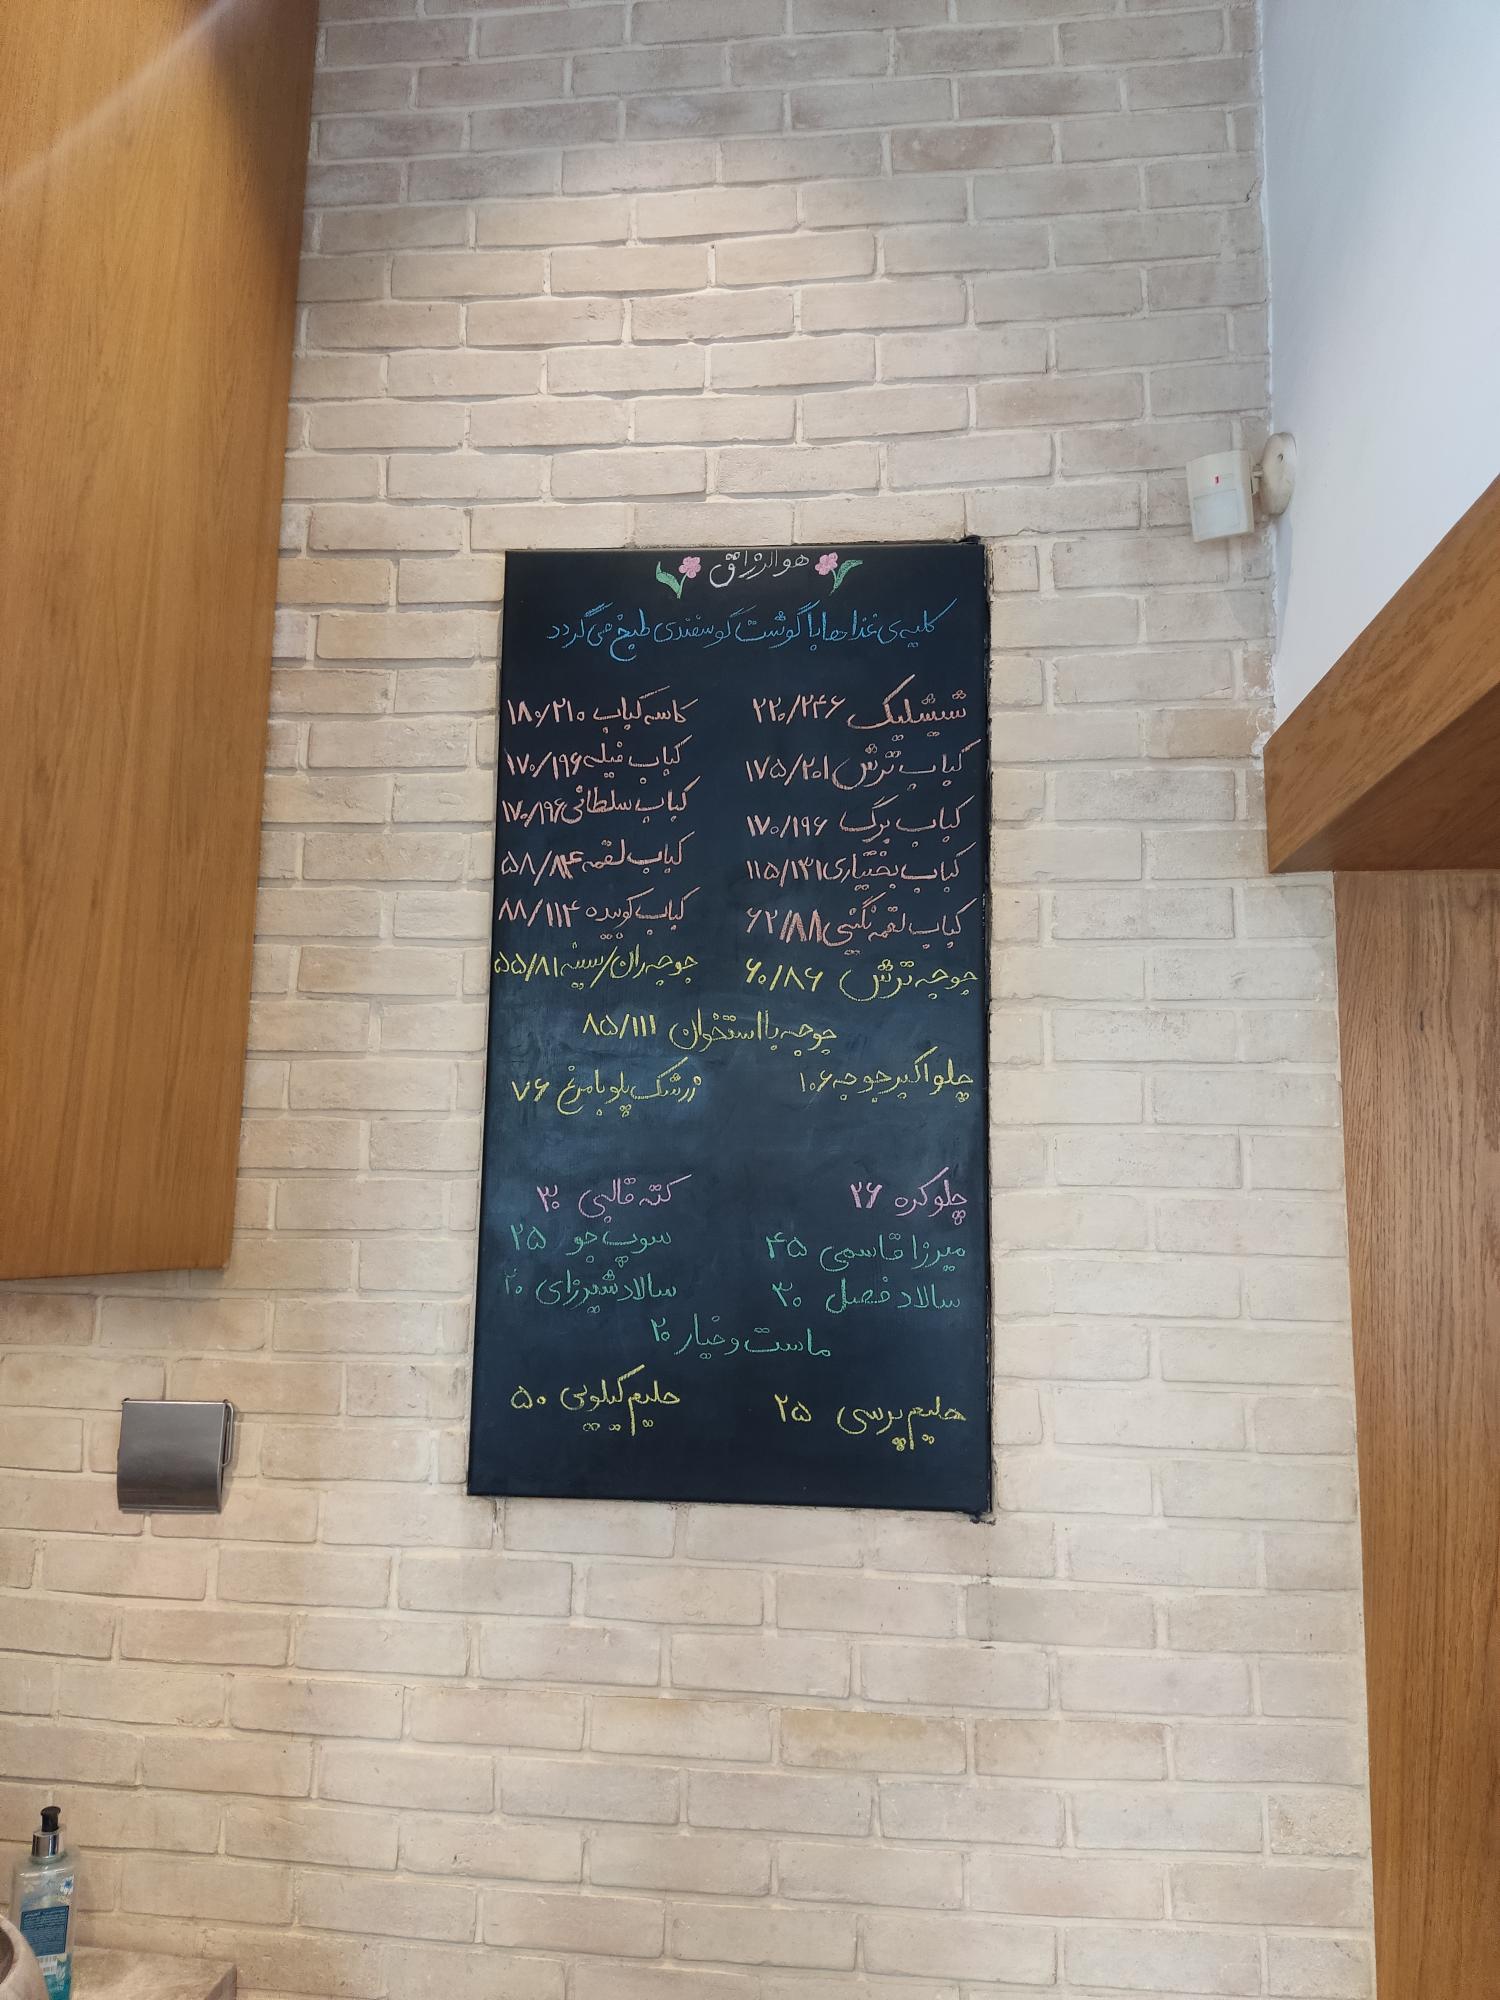 هوالرزاق
کلیه‌ی غذاها با گوشت گوسفندی طبخ می‌گردد
شیشلیک ۲۲۰/۲۴۶
کاسه کباب ۱۸۰/۲۱۰
کباب ترش ۱۷۵/۲۰۱
کباب فیله ۱۷۰/۱۹۶
کباب برگ ۱۷۰/۱۹۶
کباب سلطانی ۱۷۰/۱۹۶
کباب بختیاری ۱۱۵/۱۳۱
کباب لقمه ۵۸/۸۴
کباب لقمه نگینی ۶۲/۸۸
کباب کوبیده ۸۸/۱۱۴
جوجه ترش ۶۰/۸۶
جوجه ران/سینه ۵۵/۸۱
جوجه با استخوان ۸۵/۱۱۱
چلو اکبر جوجه ۱۰۶
زرشک پلو با مرغ ۷۶
چلو کره ۲۶
کته قالبی ۳۰
میرزا قاسمی ۴۵
سوپ جو ۲۵
سالاد فصل ۳۰
سالاد شیرزای ۲۰
ماست و خیار ۲۰
حلیم پرسی ۲۵
حلیم کیلویی ۵۰